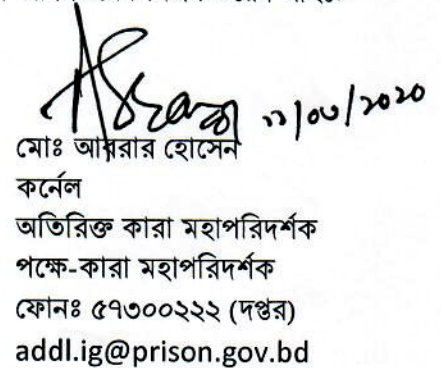 ১১/০৩/২০২০
মোঃ আবরার হোসেন
কর্নেল
অতিরিক্ত কারা মহাপরিদর্শক
পক্ষে-কারা মহাপরিদর্শক
ফোনঃ ৫৭৩০০২২২ (দপ্তর)
addl.ig@prison.gov.bd